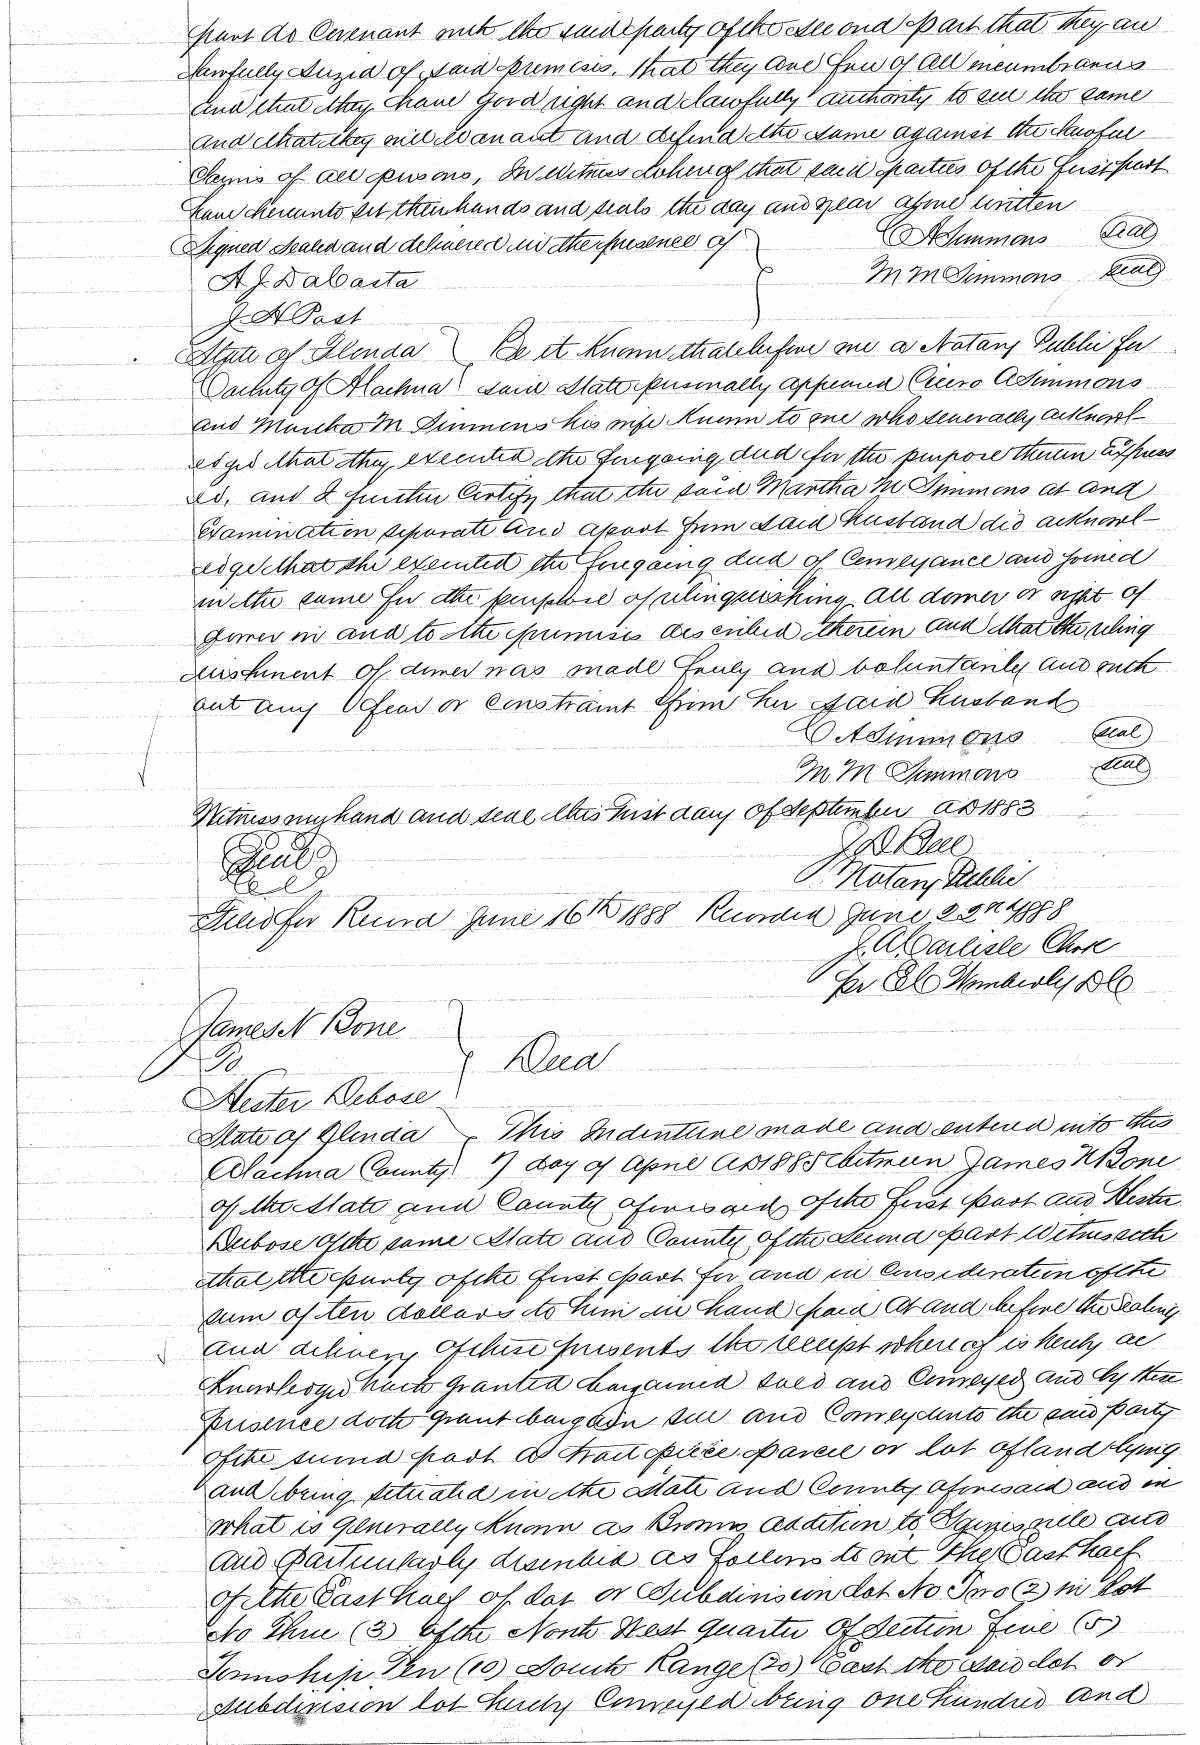 part do Covenant with the said party of the second part that they are
lawfully Siezid of said premises, that they are free of all incumbrances
and that they have good right and lawfully authority to sell the same
and that they will warrant and defend the same against the lawful
Claims of all persons, In witness whereof that said parties of the first part
have hereunto set their hands and seals the day and year above written
Signed Sealed and delivered in the presence of } C A Simmons Seal
A. J. DaCosta M M Simmons Seal
J. H Post
State of Florida } Be it Known that before me a Notary Public for
County of Alachua } said State personally appeared Cicero A Simmons
and Martha M Simmons his wife Known to me who severally acknowl-
edged that they executed the foregoing deed for the purpose therein Express
ed, and I further Certify that the said Martha M Simmons at and
Examination separate and apart from said husband did acknowl-
edge that she executed the foregoing deed of Conveyance and joined
in the same for the purpose of relinquishing all dower or right of
dower in and to the premises described therein and that the relinq
uishment of dower was made freely and voluntarily and with
out any fear or Constraint from her said husband
C A Simmons Seal
M M Simmons Seal
Witness my hand and seal this First day of September AD 1883
Seal J D Bell
Notary Public
Filed for Record June 16th 1888 Recorded June 22nd 1888
J. A. Carlisle Clerk
per E C Wimberly D C
James N Bone
To } Deed
Hester Debose
State of Florida } This Indenture made and entered into this
Alachua County } 7 day of April AD 1885 between James N Bone
of the State and County aforesaid of the first part and Hester
Debose of the same State and County of the Second part Witnesseth
that the party of the first part for and in Consideration of the
sum of ten dollars to him in hand paid At and before the Sealing
and delivery of these presents the receipt where of is hereby ac
Knowledged hath granted bargained sold and Conveyed and by these
presence doth grant bargain sell and Convey unto the said party
of the second part a tract piece parcel or lot of land lying
and being situated in the State and County aforesaid and in
what is generally known as Browns addition to Gainesville and
and particularly described as follows to wit The East half
of the East half of lot or Subdivision lot No Two (2) in Lot
No Three (3) of the North West quarter Of Section Five (5)
Township Ten (10) South Range (20) East the said lot or
subdivision lot hereby Conveyed being one hundred and